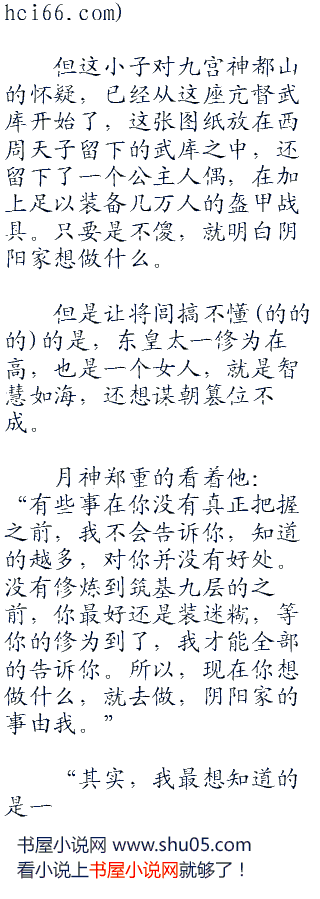 hci66.com)
但这小子对九宫神都山
的怀疑，已经从这座亢督武
库开始了，这张图纸放在西
周天子留下的武库之中，还
留下了一个公主人偶，在加
上足以装备几万人的盔甲战
具。只要是不傻，就明白阴
阳家想做什么。
但是让将闾搞不懂(的的
的)的是，东皇太一修为在
高，也是一个女人，就是智
慧如海，还想谋朝篡位不
成。
月神郑重的看着他：
“有些事在你没有真正把握
之前，我不会告诉你，知道
的越多，对你并没有好处。
没有修炼到筑基九层的之
前，你最好还是装迷糊，等
你的修为到了，我才能全部
的告诉你。所以，现在你想
做什么，就去做，阴阳家的
事由我。”
“其实，我最想知道的
是一
书屋小说网 www.shu05.com
看小说上书屋小说网就够了！